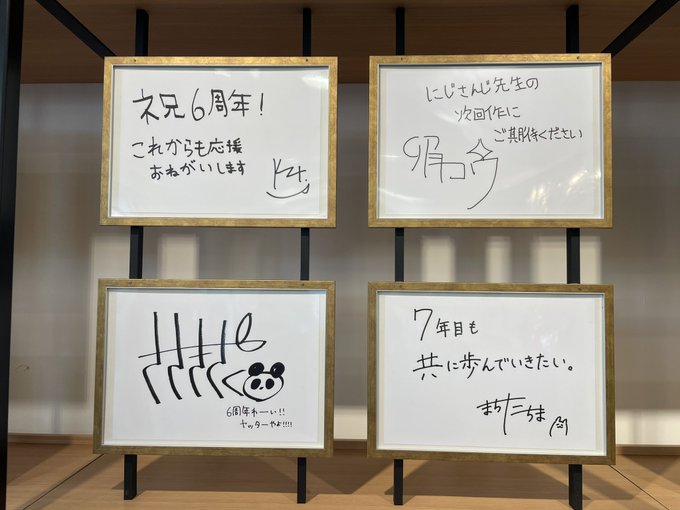 祝6周年！
これからも応援
おねがいします
にじさんじ先生の
次回作に
ご期待ください
6周年わーい!!
ヤッターやよ!!!!
7年目も
共に歩んでいきたい。
まちたちま